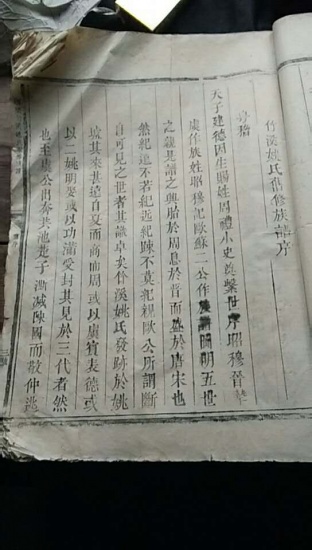 竹溪姚氏僣修族譜序
粤稽
天子建德因生賜姓周禮小史奠繫世序昭穆晉摯
虞作族姓昭穆記歐蘇二公作族譜圖明五世
之藏是譜之興胎於周息於晉而盛於唐宋也
然紀遠不若紀近紀踈不莫紀親歐公所謂斷
自可見之世者其識卓矣竹溪姚氏發跡於姚
墟其來甚遠自夏而商而周或以虞賓表德或
以二姚明妻或以功滿受封其見於三代者然
也至唐公出奔其地楚子澌滅陳國而敬仲逃